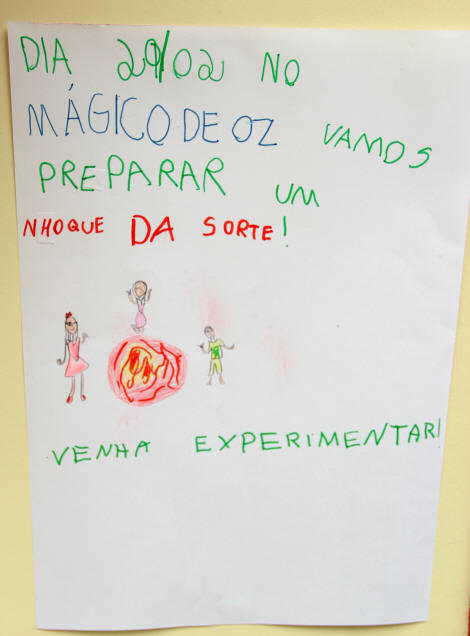 DIA 29/02 NO
MÁGICO DE OZ VAMOS
PREPARAR UM
NHOQUE DA SORTE!
VENHA EXPERIMENTAR!